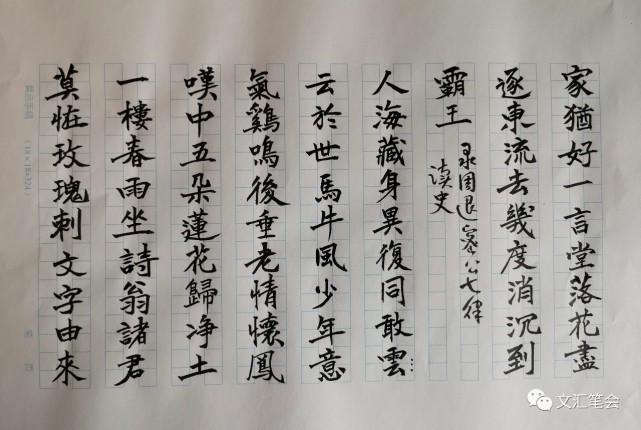 家猶好一言堂落花盡
逐東流去幾度消沉到
霸王
录周退密公七律
读史
人海藏身異復同敢雲
云於世馬牛風少年意
氣鷄鳴後垂老情懷鳳
嘆中五朵蓮花歸净土
一樓春雨坐詩翁諸君
莫恠玫瑰刺文字由來
文汇笔会